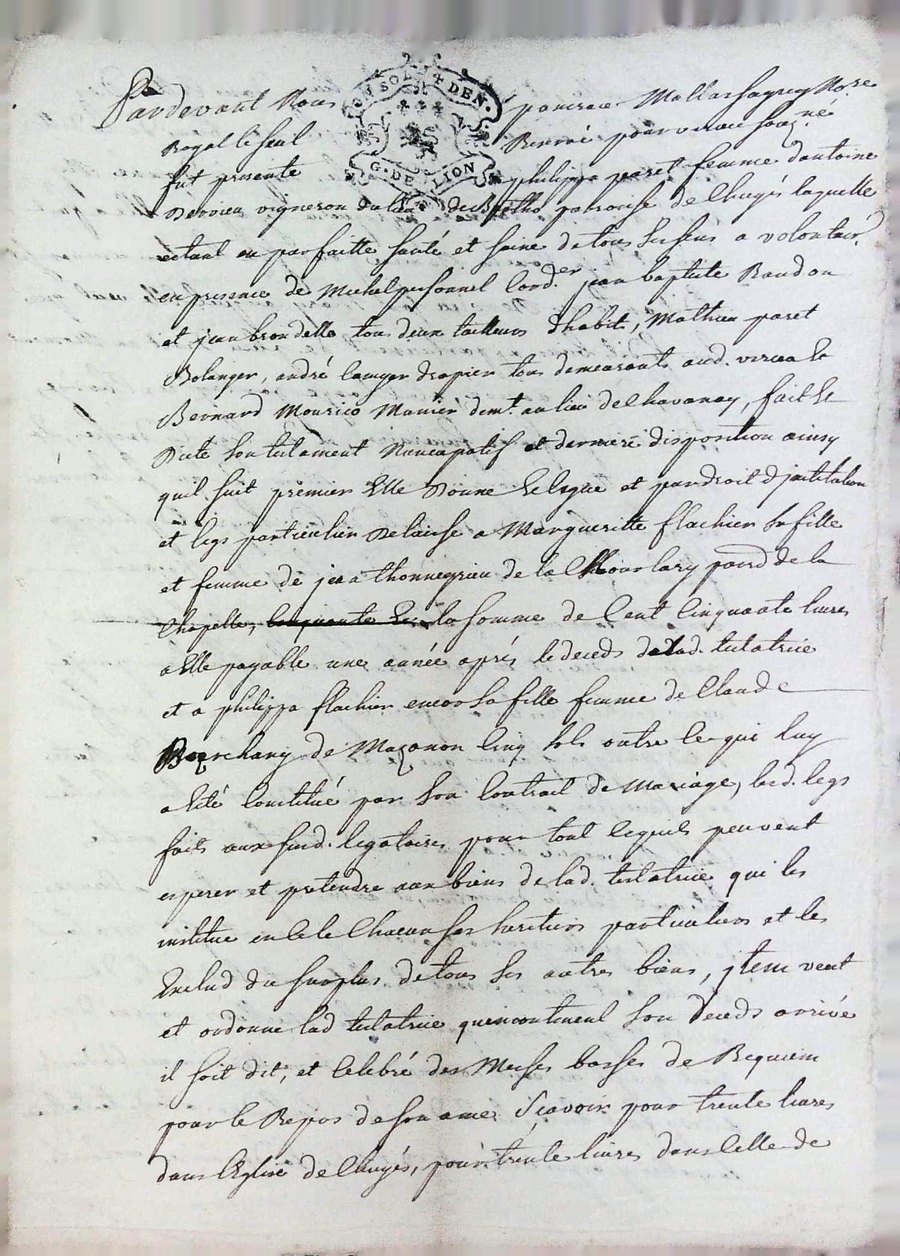 Pardevant Nous
UN SOL 4 DEN.
G. DE LION
Royal le seul Reservé pour
fut presente philippa paret femme dantoine
Dervieu vigneron du lieu de paroisse de Chuyés laquelle
estant en parfaitte santé et saine de tous ses sens a volontair.
en presence de Michel personnel Cord.er jean baptiste Baudon
et jean brondelle tous deux tailleurs dhabits, Mathieu paret
Bolanger, andré drapier tous demeurants aud. virieu &
Bernard Mourico Manier demt. au lieu de Chavanay, fait &
Dicte son testament Nuncupatif et derniere disposition ainsy
quil suit premier Elle Donne Legue et par droit djnstitution
et legs particulier Delaisse a Margueritte flachier sa fille
et femme de jean thonnerieu de la parois de la
Chapelle, la somme de Cent Cinquante livres
a Elle payable une année aprés le deceds de lad. testatrice
et a philippa flachier encor sa fille femme de Claude
de Mazonon Cinq sols outre ce qui luy
a été Constitué par son Contrait de Mariage, lesd. legs
faits aux susd. legataires pour tout ce quils peuvent
esperer et pretendre aux biens de lad. testatrice qui les
institue en ce le Chacun ses heritiers particuliers et les
Exclud du surplus de tous ses autres biens, jtem veut
et ordonne lad testatrice quincontinent son deceds arrivé
il soit dit, et Celebré des Messes basses de Requiem
pour le Repos de son ame, Scavoir pour trente livres
dans L'Eglise de Chuyés, pour trente livres dans Celle de